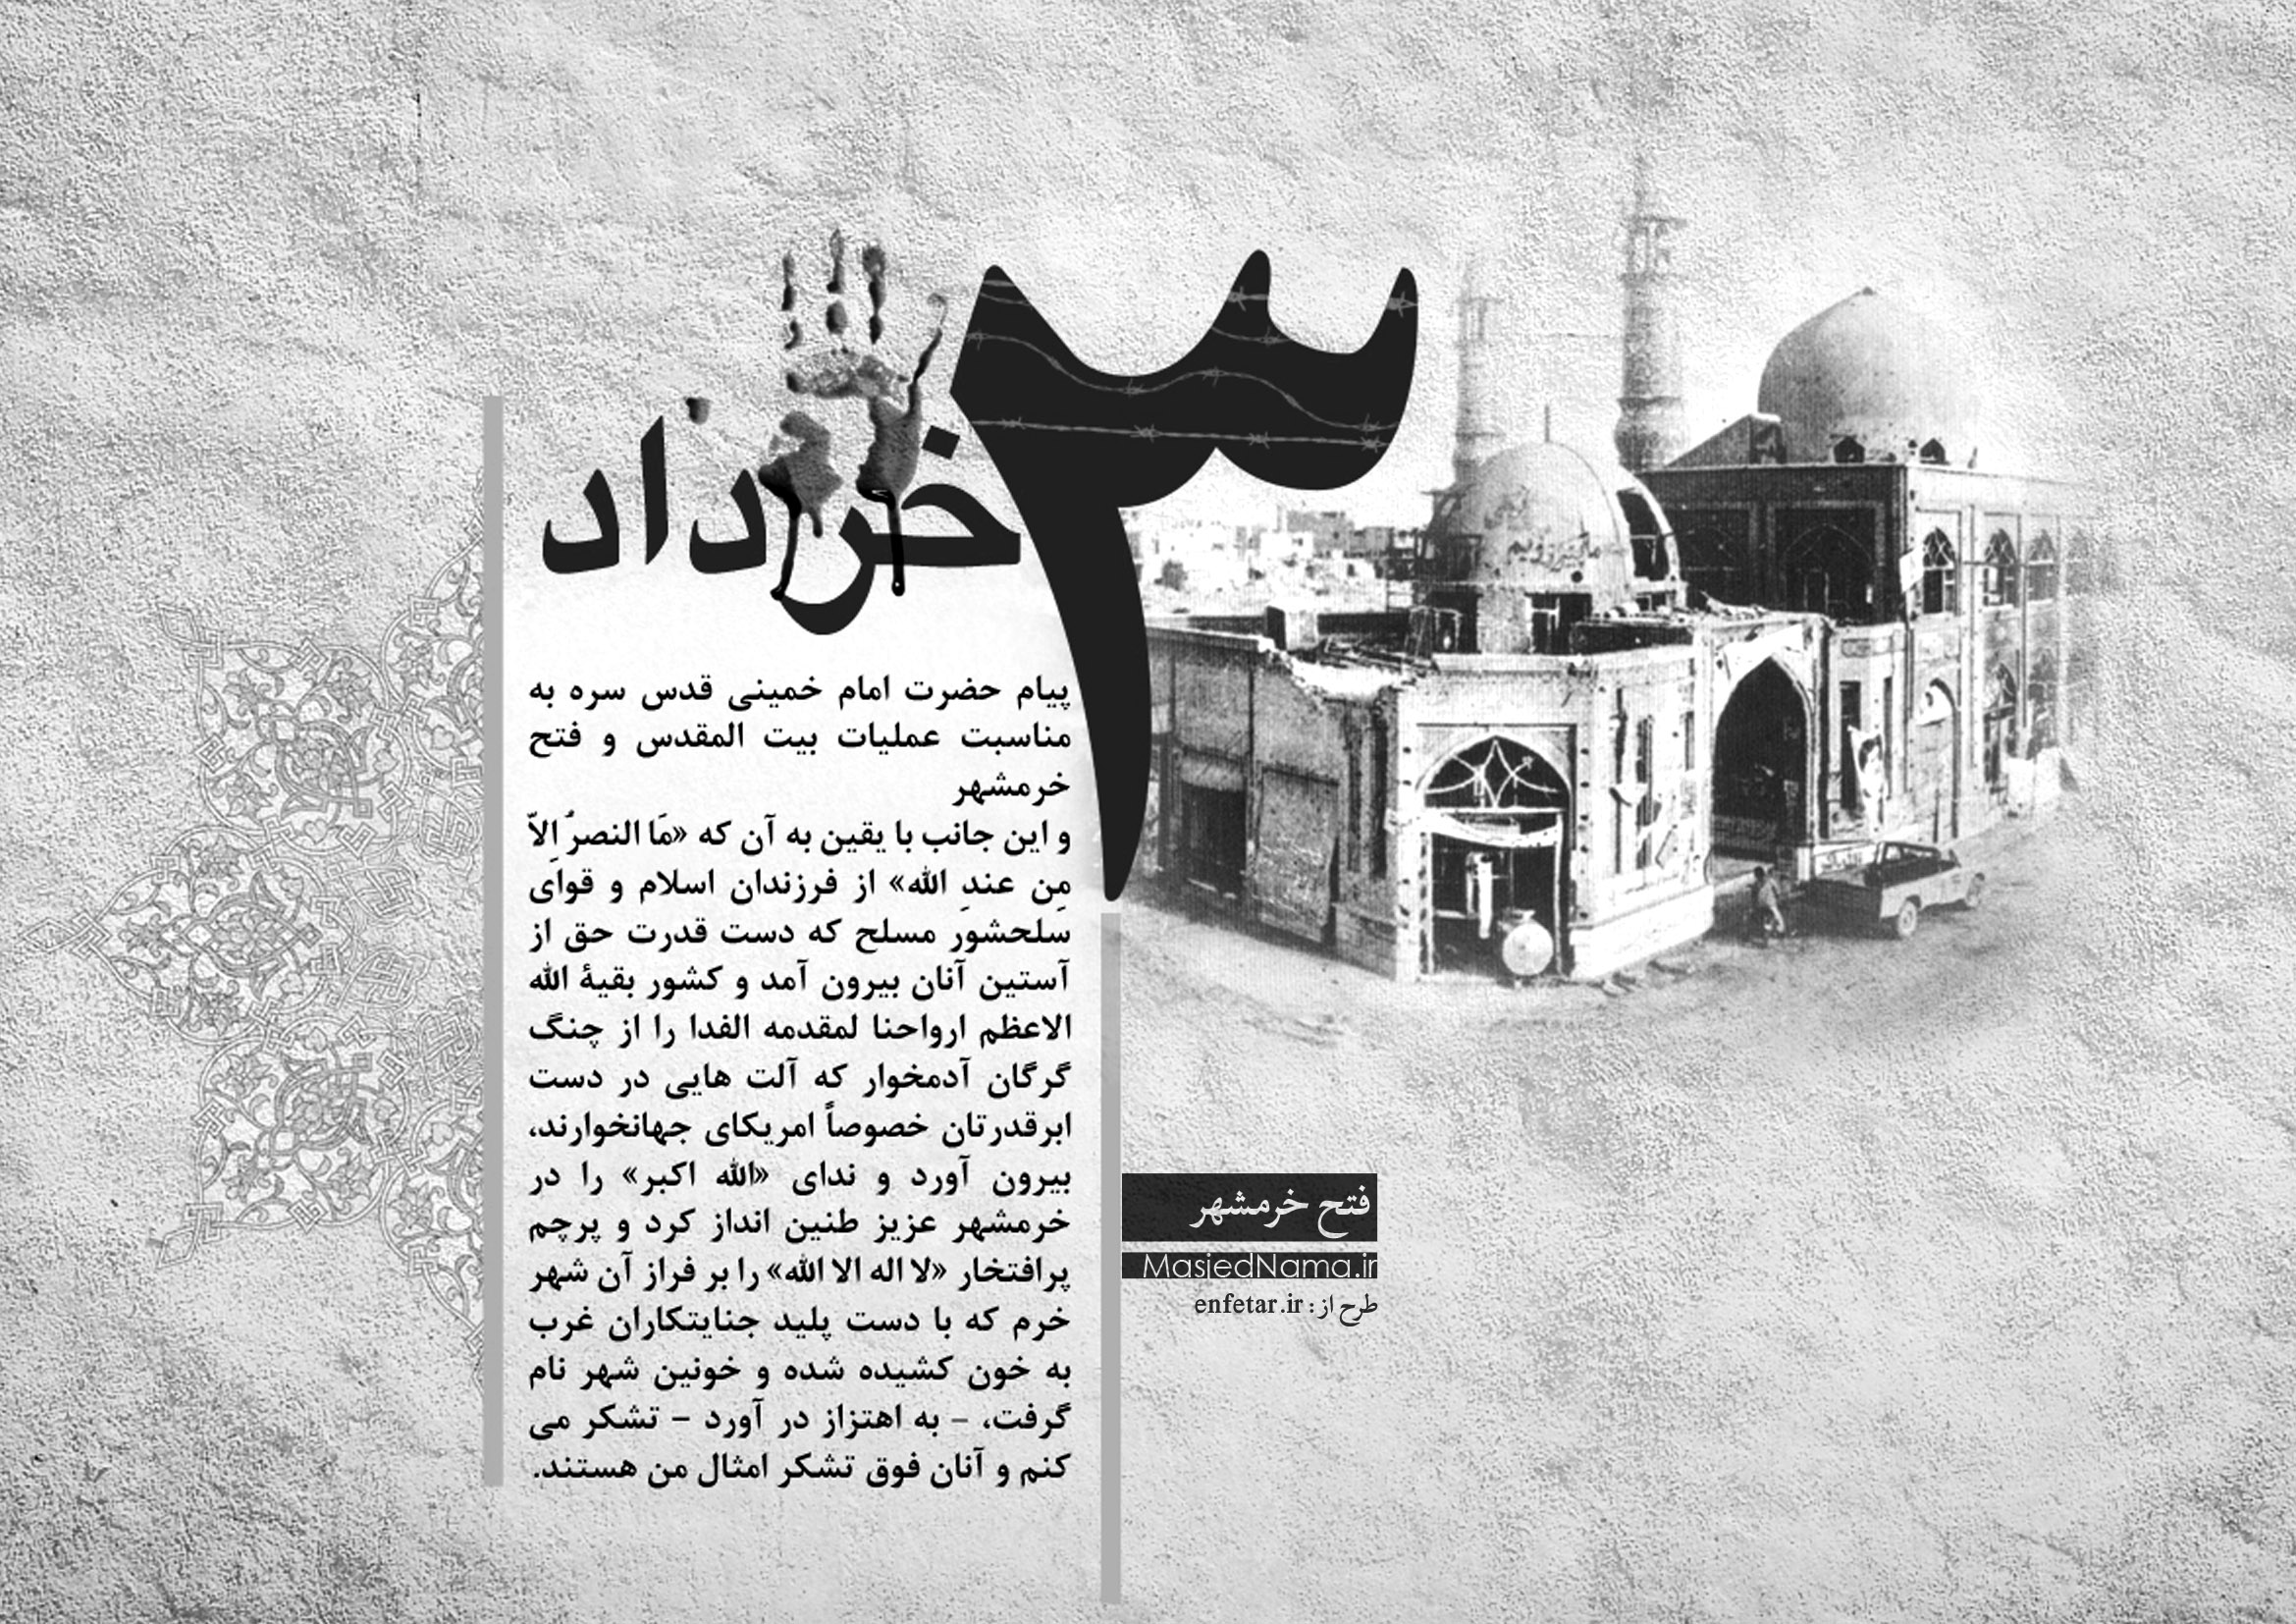 ۳ خرداد
پیام حضرت امام خمینی قدس سره به
مناسبت عملیات بیت المقدس و فتح
خرمشهر
و این جانب با یقین به آن که «مَا النصرُ اِلاّ
مِن عندِ الله» از فرزندان اسلام و قوای
سلحشور مسلح که دست قدرت حق از
آستین آنان بیرون آمد و کشور بقیۀ الله
الاعظم ارواحنا لمقدمه الفدا را از چنگ
گرگان آدمخوار که آلت هایی در دست
ابرقدرتان خصوصاً امریکای جهانخوارند،
بیرون آورد و ندای «الله اکبر» را در
خرمشهر عزیز طنین انداز کرد و پرچم
پرافتخار «لا اله الا الله» را بر فراز آن شهر
خرم که با دست پلید جنایتکاران غرب
به خون کشیده شده و خونین شهر نام
گرفت، - به اهتزاز در آورد - تشکر می
کنم و آنان فوق تشکر امثال من هستند.
فتح خرمشهر
MasjedNama.ir
طرح از: enfetar.ir